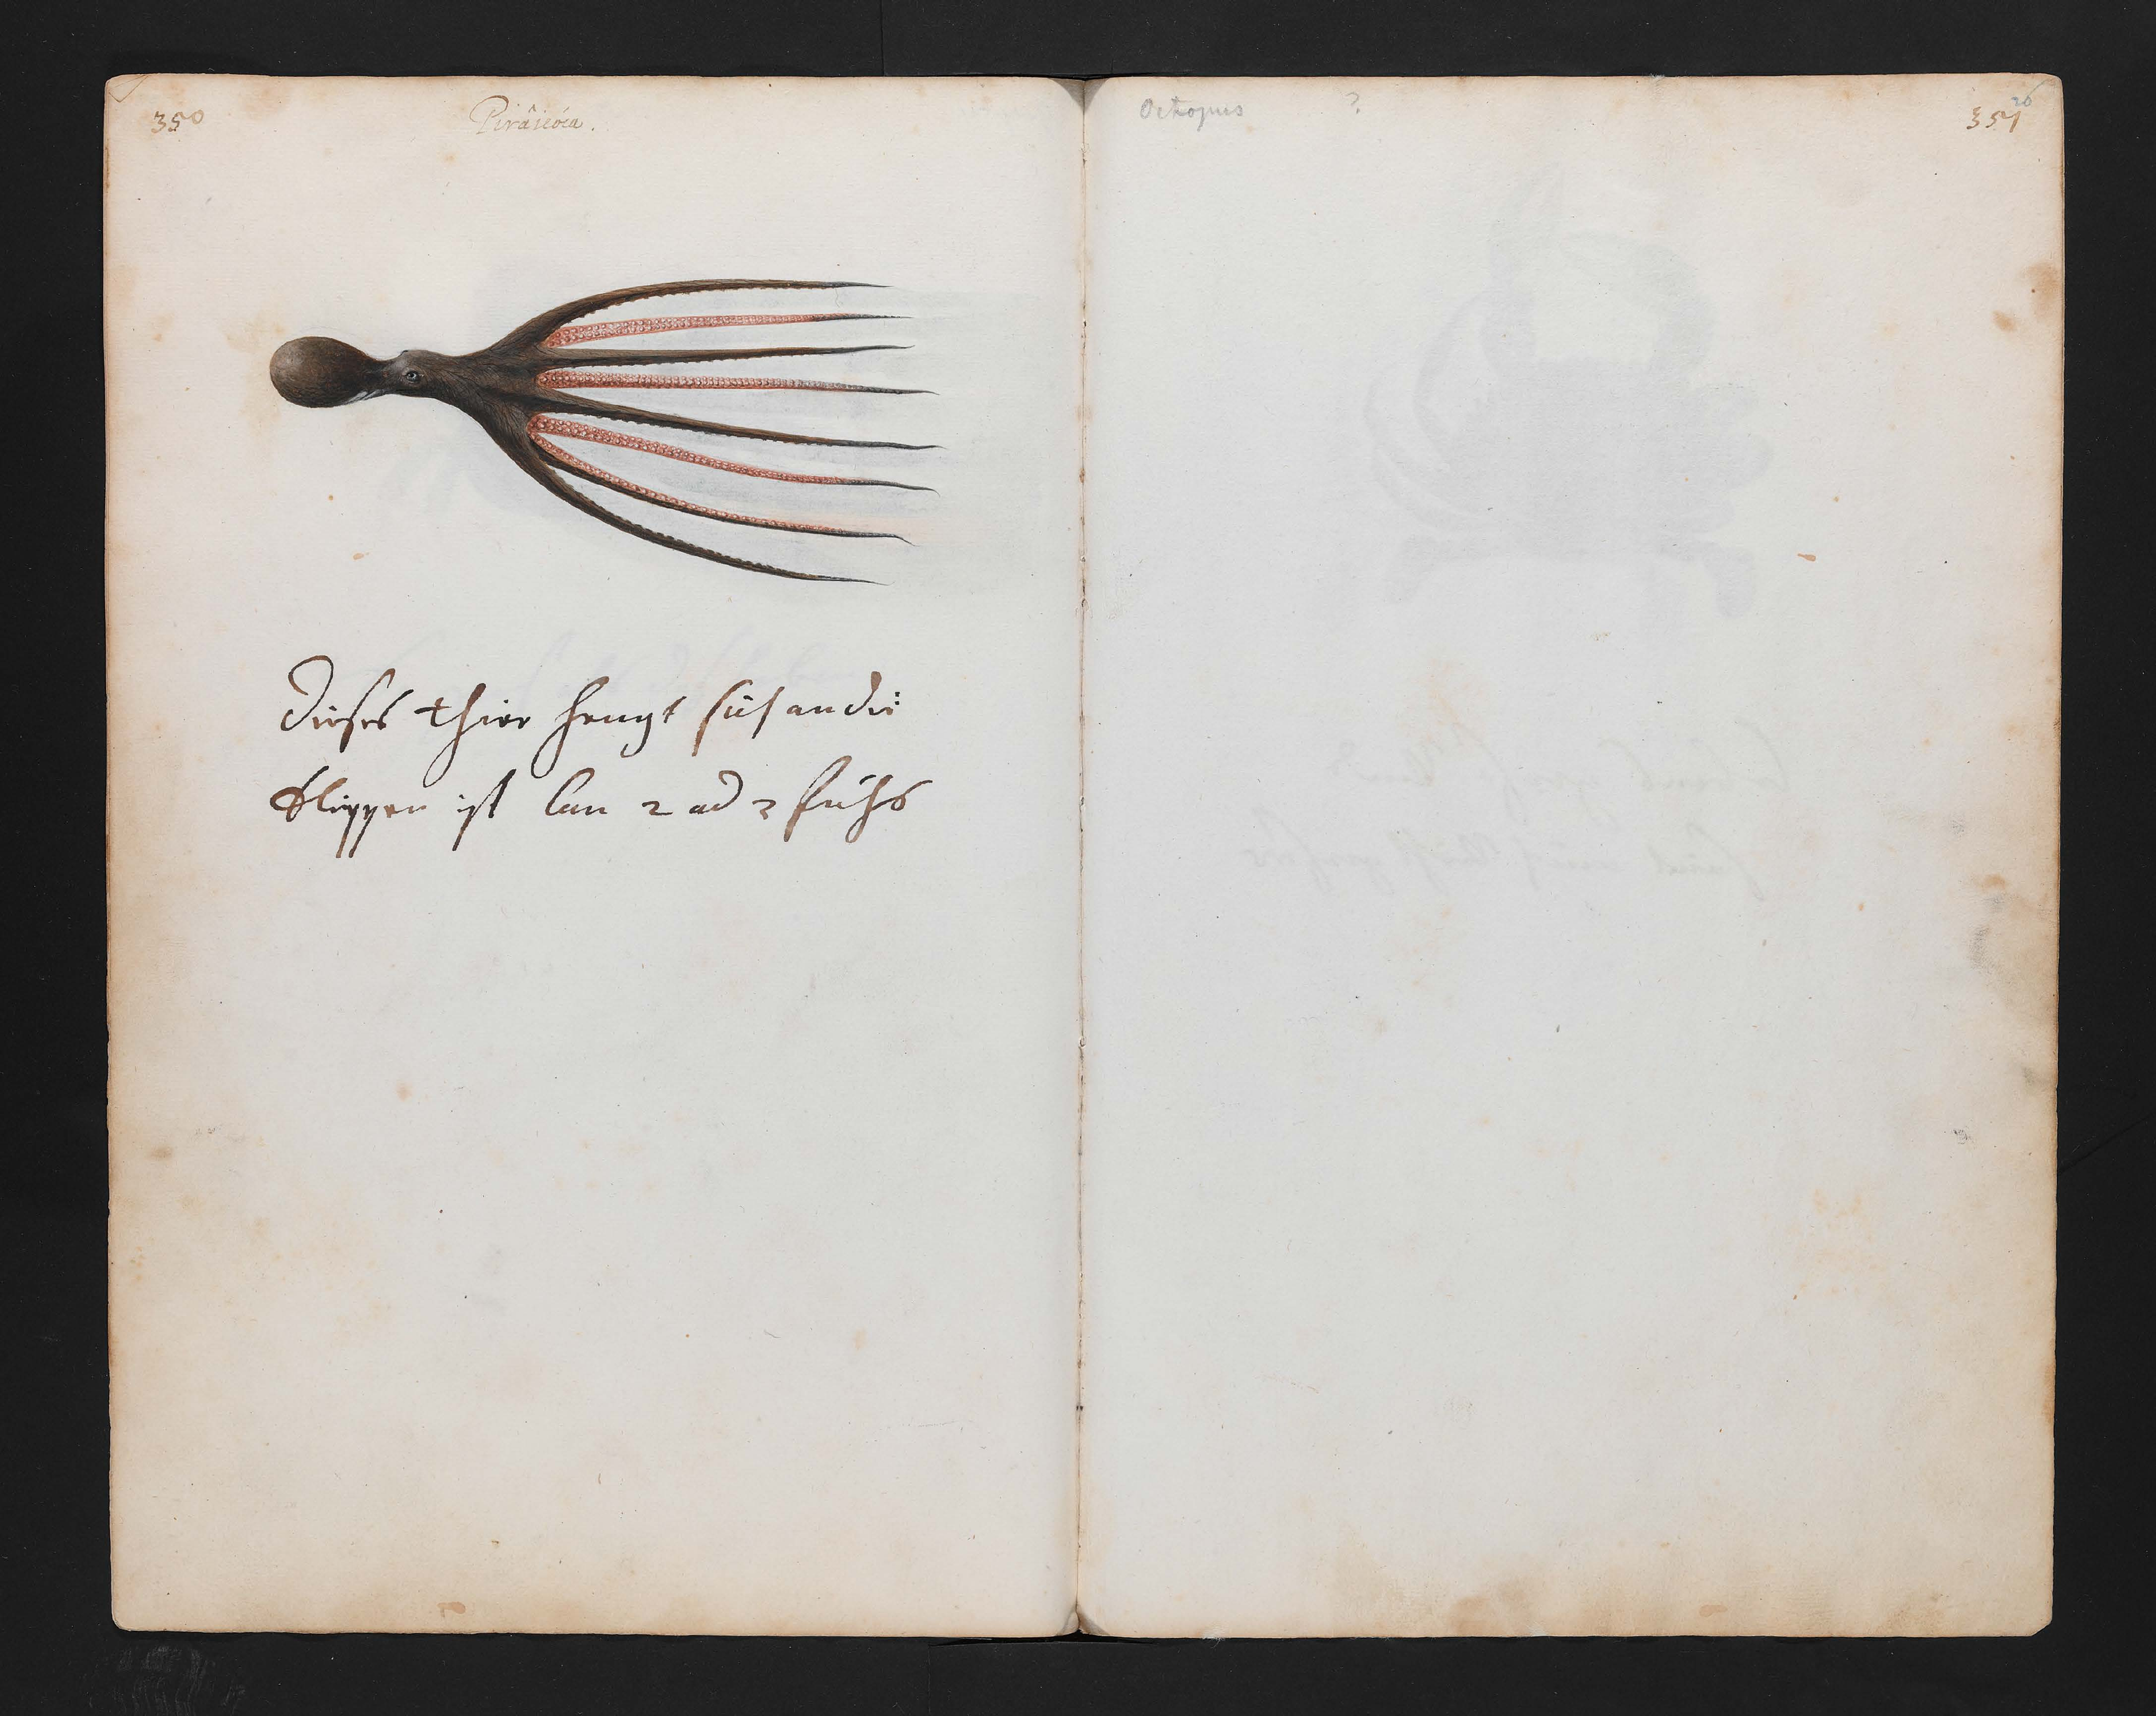 350
Piráicóca.
Dieses thier hengt sich an die
klippen ist lan 2 ad 3 fuhs
Octopus ?
26
351